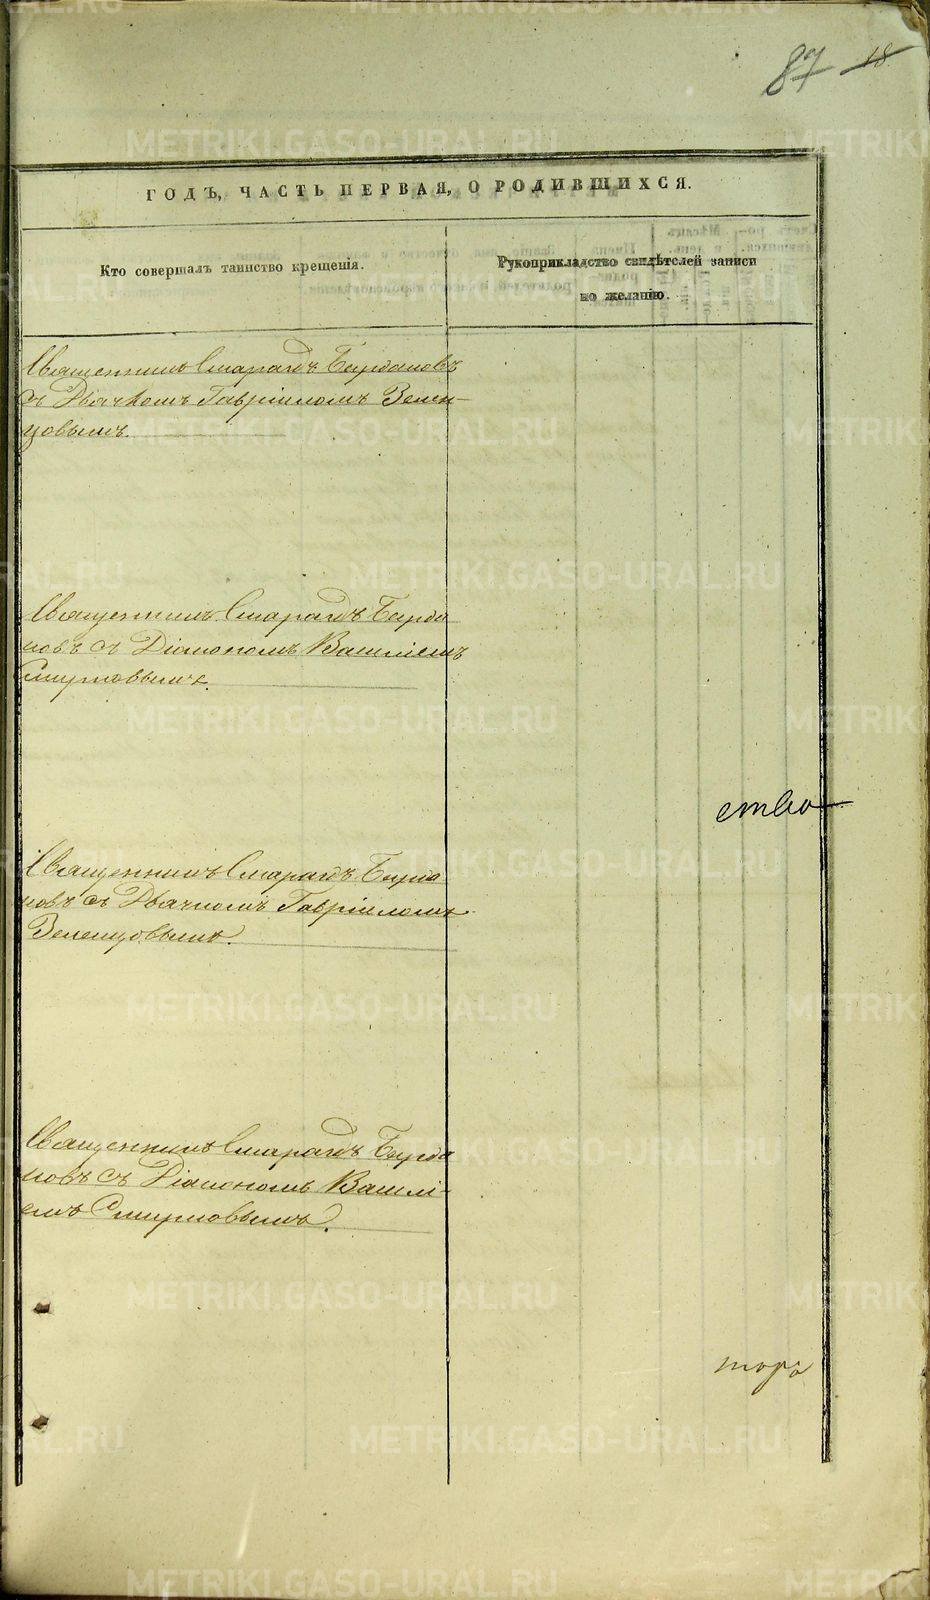 87 18
ГОДЪ, ЧАСТЬ ПЕРВАЯ, О РОДИВШИХСЯ.
Кто совершалъ таинство крещенія.
Рукоприкладство свидѣтелей записи
по желанію.
Священникъ Смарагдъ Бирдановъ
съ Дьячкомъ Гавріиломъ Зелен-
цовымъ.
Священникъ Смарагдъ
новъ съ Діакономъ Василіемъ
Смирновымъ.
ство
Священникъ Смарагдъ
новъ съ Дьячкомъ Гавріиломъ
Зеленцовымъ.
Священникъ Смарагдъ
новъ съ Діакономъ Василі-
емъ Смирновымъ.
тора
METRIKI.GASO-URAL.RU